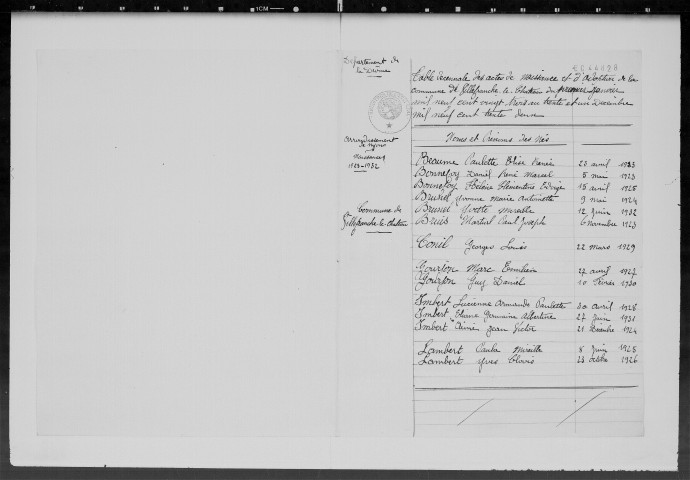 Département de
la Drôme
Arrondissement
de Nyons
Naissances
1923-1932
Commune de
Villefranche le Château
Table décennale des actes de Naissance et d'adoption de la
commune de Villefranche le Château du premier Janvier
mil neuf cent vingt trois au trente et un Décembre
mil neuf cent trente deux
Noms et Prénoms des Nés
Beaume Paulette Elise 23 avril 1923
Bonnefoy Daniel René Marcel 5 mai 1923
Bonnefoy Hélène Clémentine Edwige 15 avril 1925
Brunel Yvonne Marie Antoinette 9 mai 1924
Brunel Yvette Mireille 12 juin 1932
Bruis Martial Paul Joseph 6 novembre 1923
Conil Georges Louis 22 mars 1929
Gourjon Marc Emilien 27 avril 1927
Gourjon Guy Daniel 10 février 1930
Imbert Lucienne Armande Paulette 30 avril 1928
Imbert Eliane Germaine Albertine 27 juin 1931
Imbert Jean Victor 21 Décembre 1924
Lambert Paula Mireille 8 juin 1925
Lambert Yves Clovis 23 octobre 1926